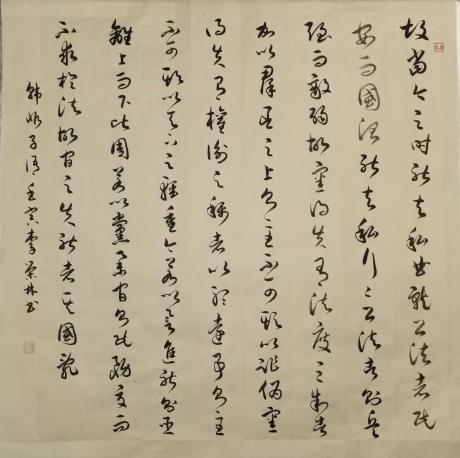 故當今之時能去私曲就公法者民
安而國治能去私行々公法者則兵
強而敵弱故審得失有法度之制者
加以群臣之上則主不可欺以詐偽審
得失有權衡之稱者以聽遠事則主
不可欺以天下之輕重今若以譽進能則臣
離上而下比周若以黨舉官則民務交而
不求於法故官之失能者其國亂
韓非子語壬寅李榮林書